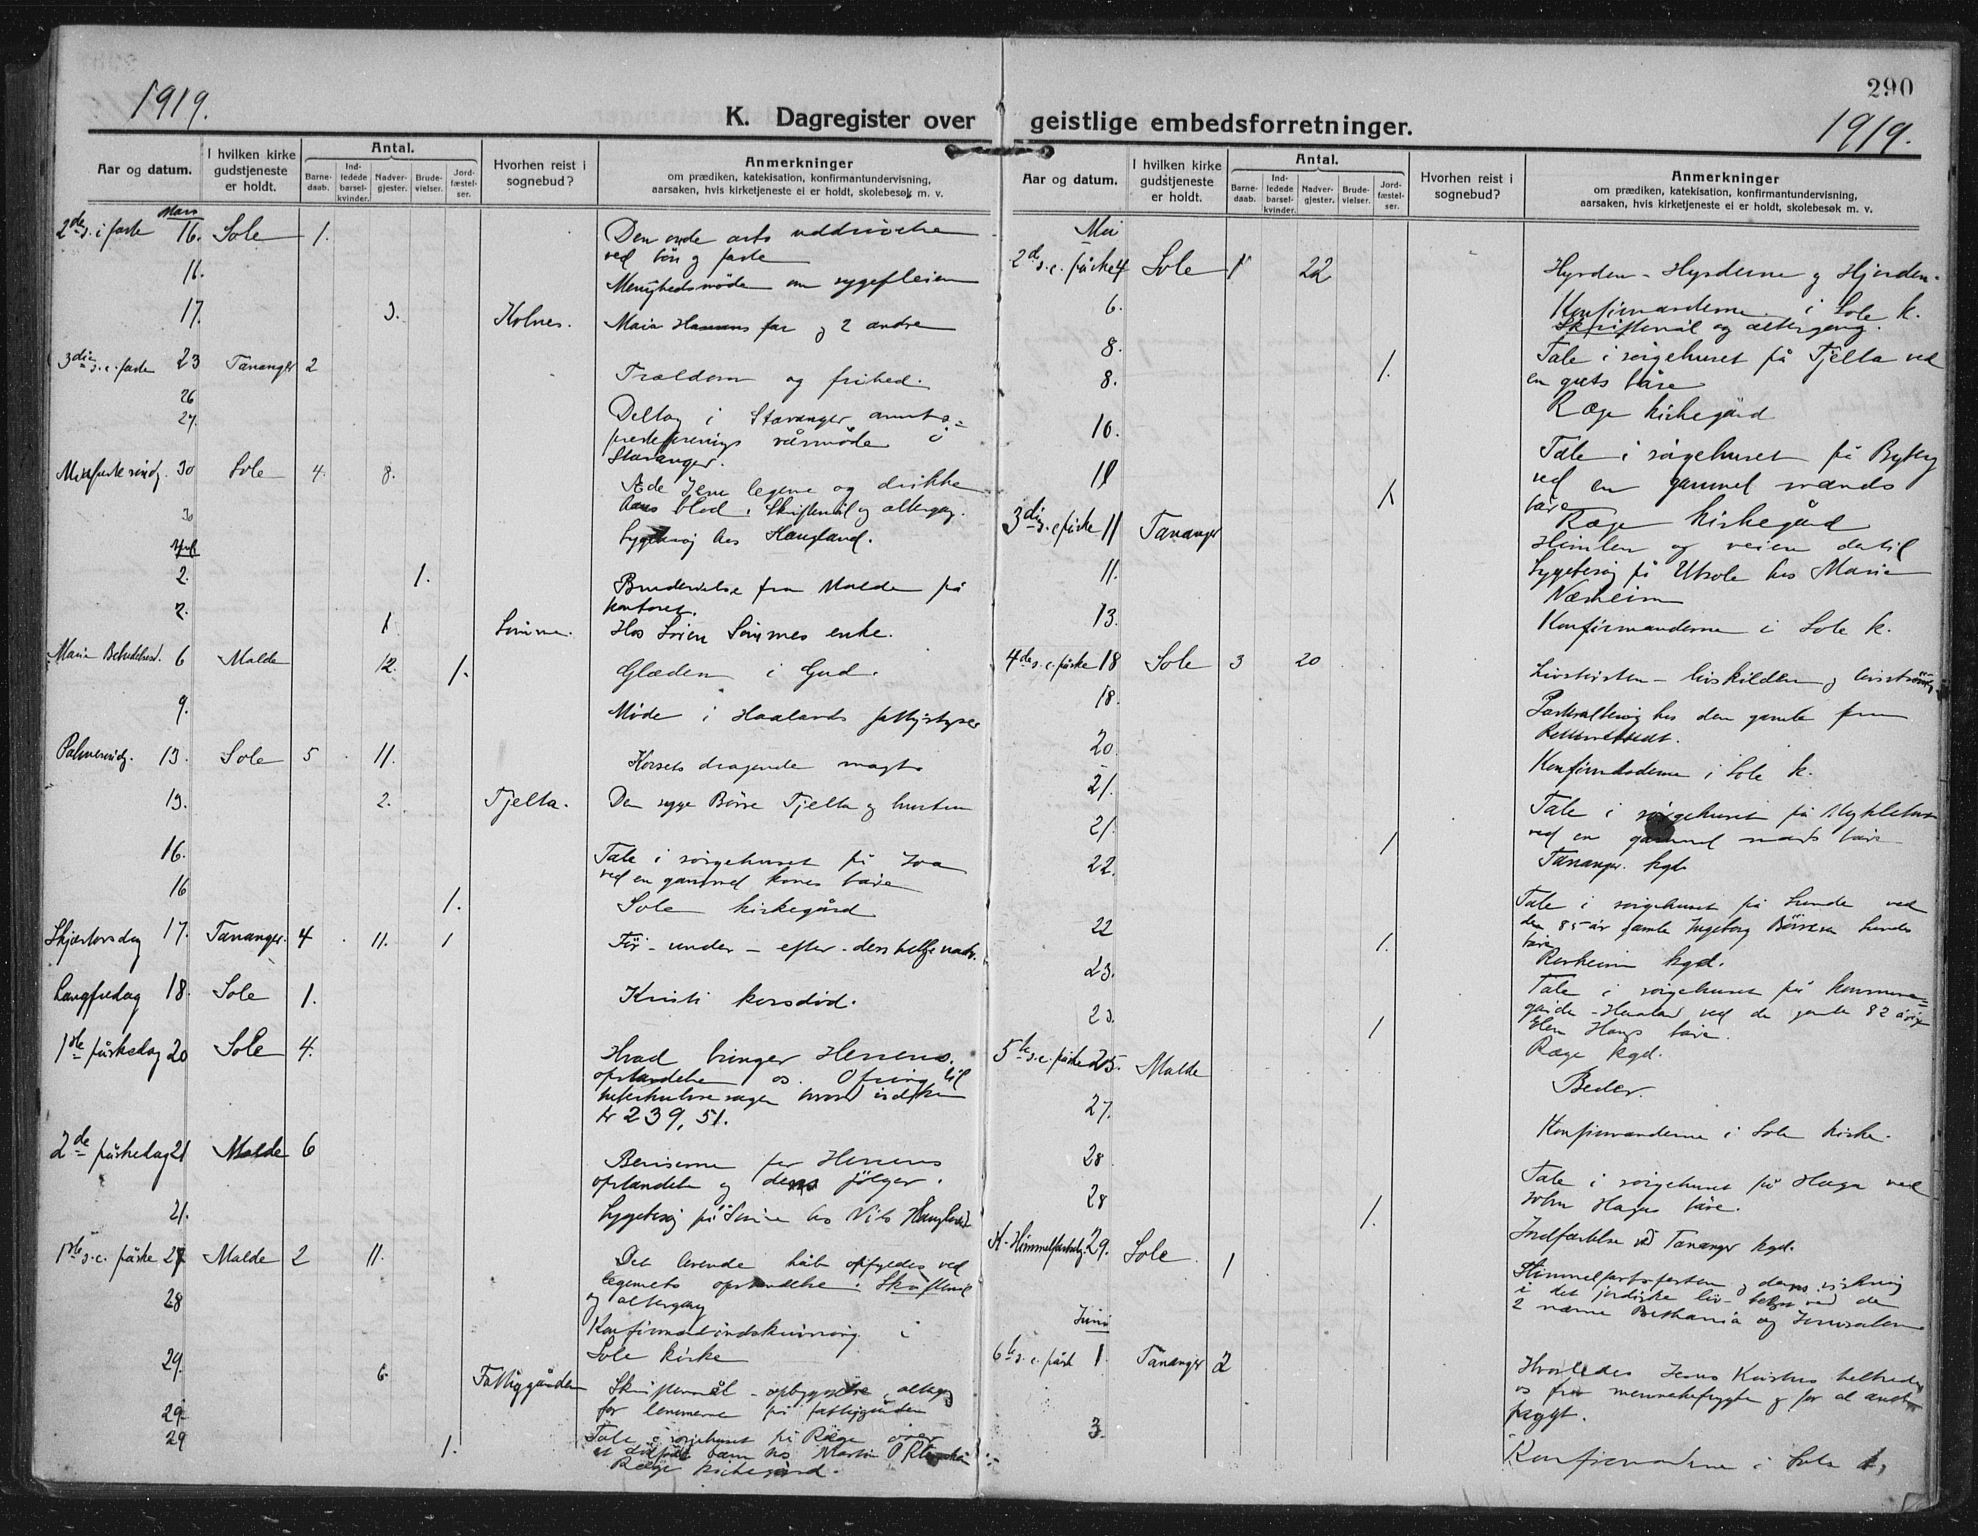 290
1919.
1919.
K. Dagregister over geistlige embedsforretninger.
Aar og datum.
I hvilken kirke gudstjeneste er holdt.
Antal.
Barne-daab.
Ind-ledede barsel-kvinder.
Nadver-gjester.
Brude-vielser.
Jord-fæstel-ser.
Hvorhen reist i sognebud?
Anmerkninger
om prædiken, katekisation, konfirmantundervisning,
aarsaken, hvis kirketjeneste ei er holdt, skolebesøk m. v.
Mars
2de s. i faste 16. Sole 1. Den onde arts uddrivelse
ved bön og faste
16. Menighedsmöde om sygepleien
17. 3. Kolnes. Maria far og 2 andre
3die s. i faste 23 Tananger 2 Trældom og frihed.
26
27. Deltog i Stavanger amts=
presteforenings vårmöde i
Stavanger.
Midfaste sönd. 30 Sole 4. 8. Æde Jesu legeme og drikke
hans blod. Skriftemål og altergang.
30 Sygebesög hos Haugland.
April
2. 1. Brudevielse fra Malde på
kontoret.
2. 1 Sömme. Hos Sören Sömmes enke.
Maria Bebudelsesd. 6 Malde 12. 1. Glæden i Gud.
9. Möde i Haalands fattigstyre
Palmesöndg. 13. Sole 5 11. Korsets dragende magt.
13. 2. Tjelta. Den syge Börre Tjelta og hustru
16. Tale i sörgehuset på
ved en gammel kones båre
16 1. Sole kirkegård
Skjærtorsdag 17. Tananger. 4 11. 1 För - under - efter - den hellige nadv.
Langfredag 18. Sole 1. Kristi korsdöd.
1ste påskedag 20 Sole 4. Hvad bringer Herrens
opstandelse os. Ofring til
tuberkulose sagen
kr 239,51.
2de påskedag 21 Malde 6 Beviserne for Herrens
opstandelse og dens fölger.
21. Sygebesög på hos Nils Haugland
1ste s. e. påske 27 Malde 2 11. Det levende håb opfyldes ved
legemets opstandelse. Skriftemål
og altergang
28 Konfirmandindskrivning i
Sole kirke
29. 6. Fattiggården Skriftemål - opbyggelse, alterg.
for lemmerne på fattiggården
29. Tale i sörgehuset på Ræge over
et barn hos Martin
29 1. Ræge kirkegård.
Aar og datum.
I hvilken kirke gudstjeneste er holdt.
Antal.
Barne-daab.
Ind-ledede barsel-kvinder.
Nadver-gjester.
Brude-vielser.
Jord-fæstel-ser.
Hvorhen reist i sognebud?
Anmerkninger
om prædiken, katekisation, konfirmantundervisning,
aarsaken, hvis kirketjeneste ei er holdt, skolebesøk m. v.
Mai
2den s. e. påske 4 Sole 1 22 Hyrden - Hyrderne og Hjorden.
6. Konfirmanderne i Sole k.
Skriftemål og altergang.
8. Tale i sörgehuset på Tjelta ved
en guts båre
8. 1. Ræge kirkegård
10. Tale i sörgehuset på
ved en gammel mands
båre
1 Ræge kirkegård
3die s. e. påske 11 Tananger Himlen og veien dertil
11. Sygebesög på Utsole hos Maria
Næsheim
13. Konfirmanderne i Sole k.
4de s. e. påske 18 Sole 3 20 - livskilden og
18. hos den gamle fru
20. i Sole k.
21. Tale i sörgehuset på Myklebust
ved en gammel mands båre
21. 1 Tananger kgd.
22. Tale i sörgehuset på Sunde ved
den 85 år gamle Ingeborg Börresen Sundes
båre
22 1. kgd.
23. Tale i sörgehuset på
ved de gamle 82 årige
båre.
23. 1 Ræge kgd.
5te s. e. påske 25. Malde Beder.
27. Konfirmanderne i Sole kirke.
28. Tale i sörgehuset på Haga ved
John Hagas båre.
28 1. Jordfæstelse på Tananger kgd.
Kr. Himmelfartsdg. 29. Sole. 1 Himmelfartsfesten og dens virkning
i det jordiske liv - belyst ved de
2 navne Bethania og Jerusalem
Juni
6te s. e. påske 1. Tananger 2 Hvorledes Jesus Kristus befrier
os fra menneskefrygt og for al anden
frygt.
3. Konfirmanderne i Sole k.